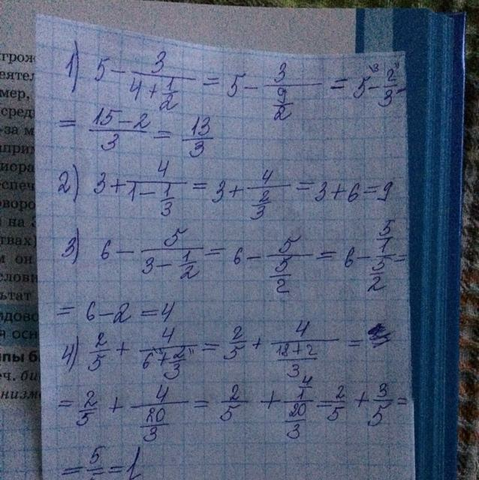 1) 5 - 3/(4 + 1/2) = 5 - 3/(9/2) = 5 - 2/3 =
= (15 - 2)/3 = 13/3
2) 3 + 4/(1 - 1/3) = 3 + 4/(2/3) = 3 + 6 = 9
3) 6 - 5/(3 - 1/2) = 6 - 5/(5/2) = 6 - (5/1)/(5/2) =
= 6 - 2 = 4
4) 2/5 + 4/(6 + 2/3) = 2/5 + 4/((18 + 2)/3) =
= 2/5 + 4/(20/3) = 2/5 + (4/1)/(20/3) = 2/5 + 3/5 =
= 5/5 = 1